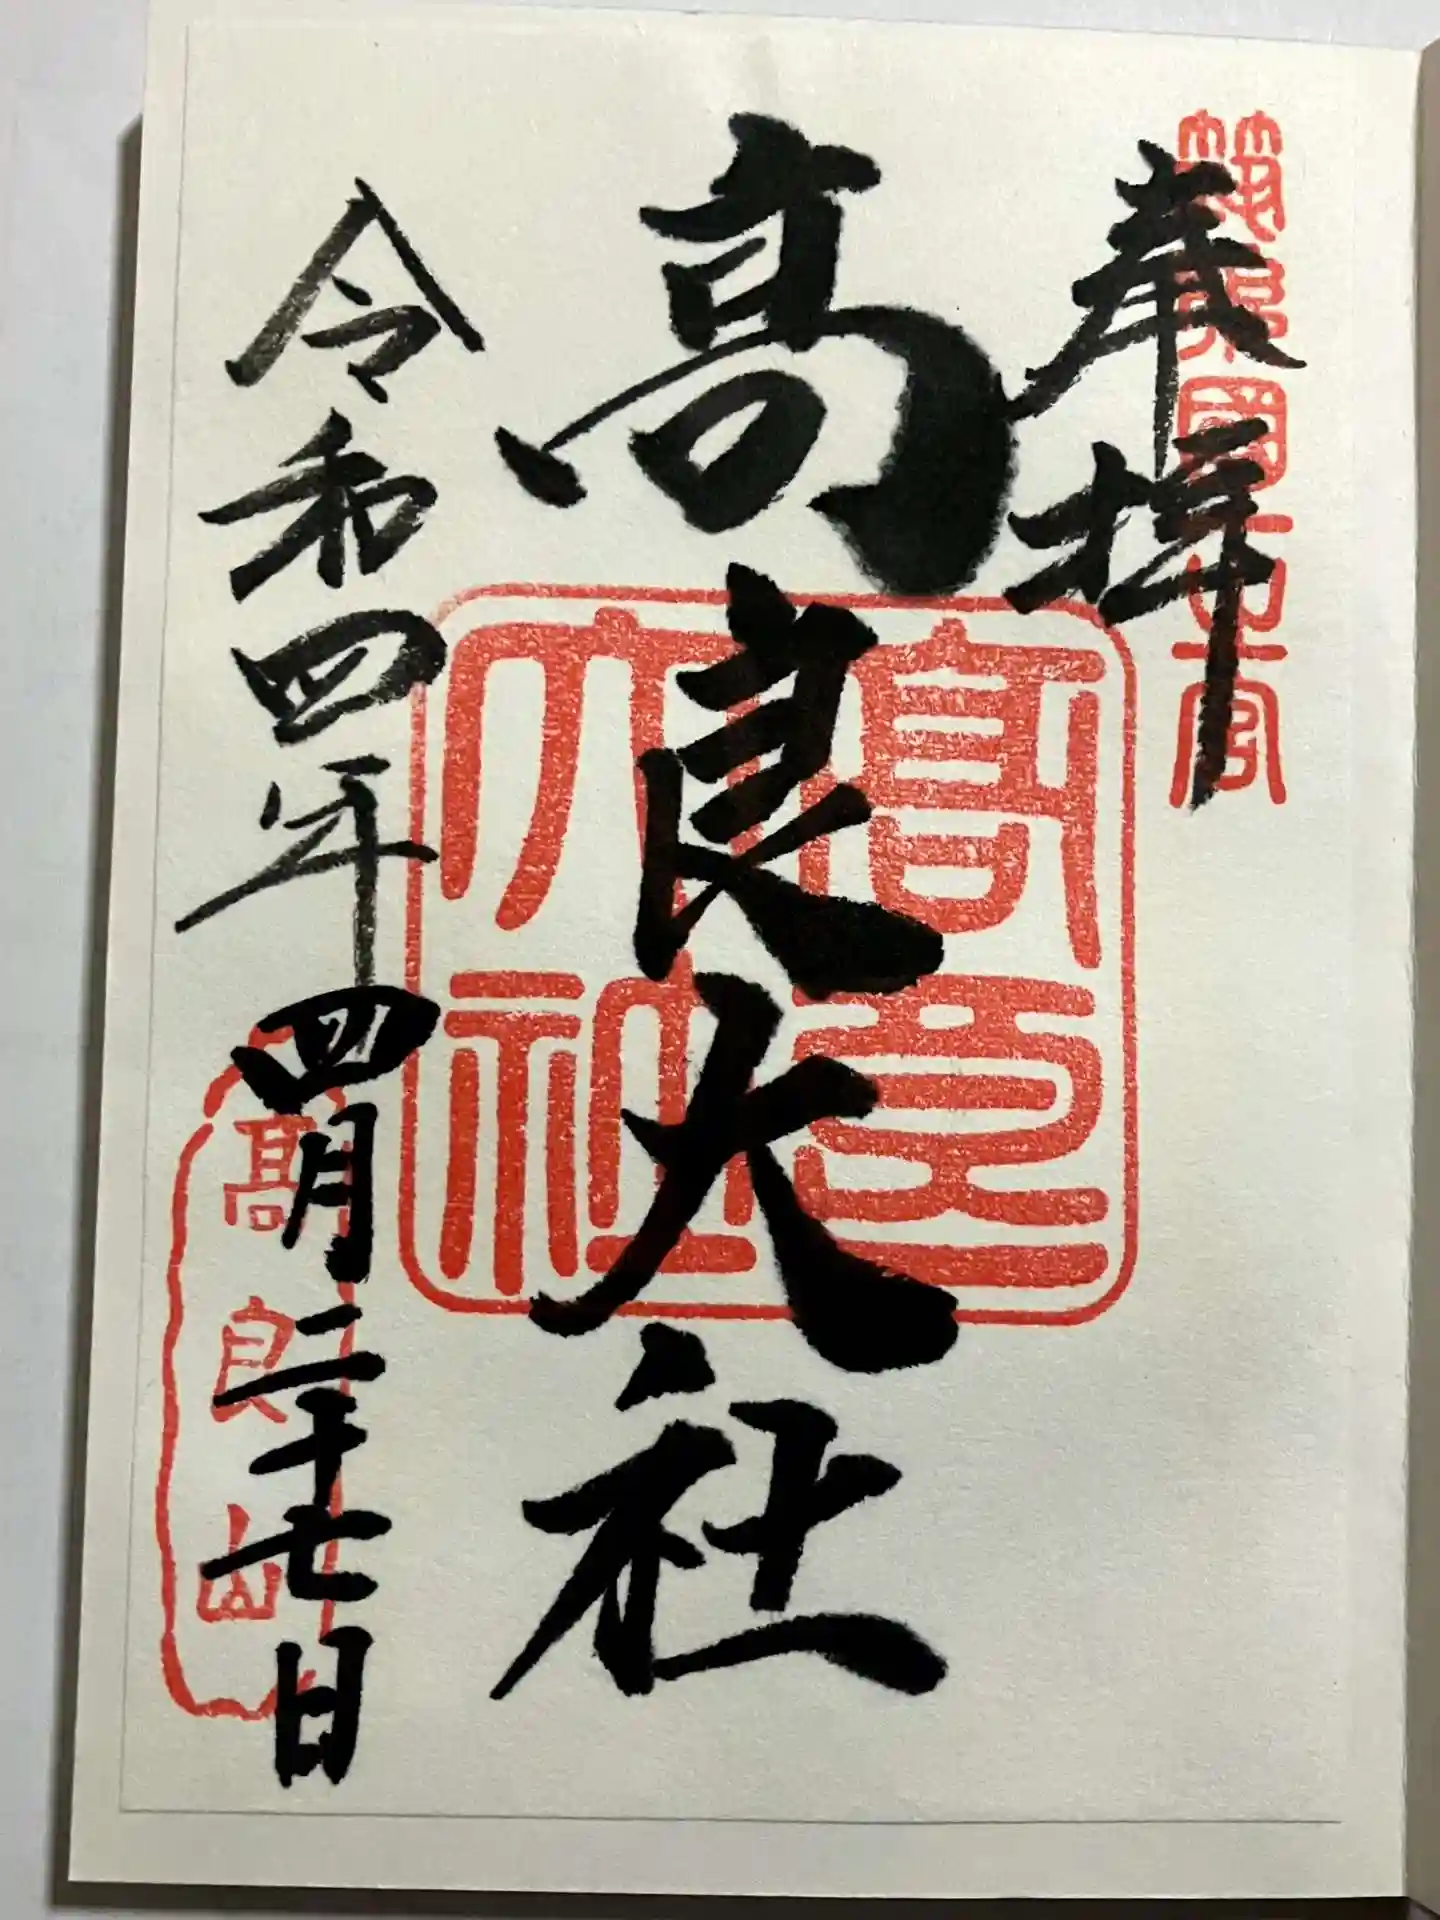 筑後國一之宮
奉拝
高良大社
高良大社
令和四年四月二十七日
高良山